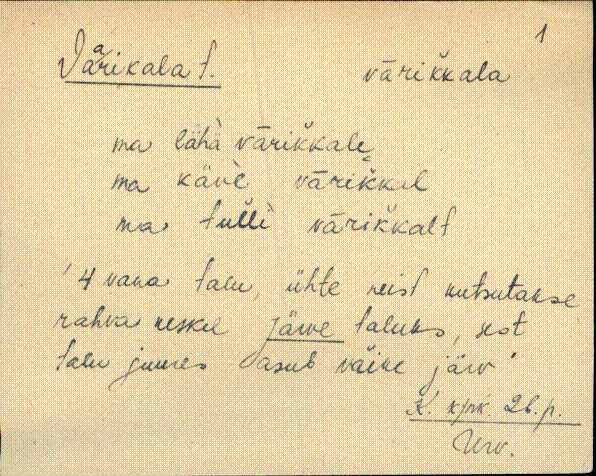 1
Vaarikala t. värikkala
ma lähä värikkale
ma käve värikkal
ma tulli värikkalt
'4 vana talu, ühte neist kutsutakse
rahva keskel järve taluks, sest
talu juures asub väike järv'
K. kpnk. 26. p.
Urv.